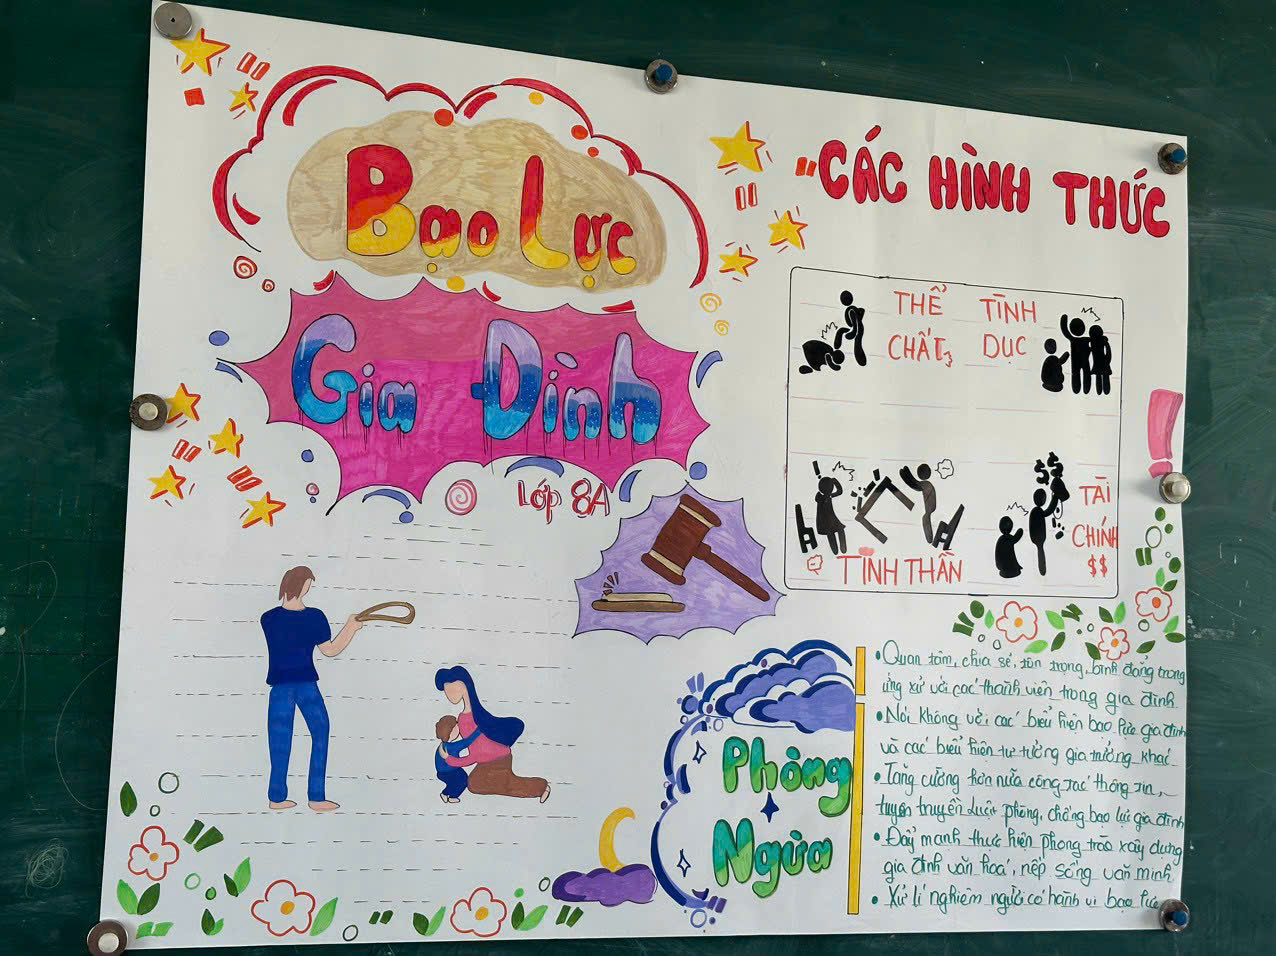 Bạo Lực
Gia Đình
Lớp 8A
CÁC HÌNH THỨC
THỂ
CHẤT
TÌNH
DỤC
TINH THẦN
$$
TÀI
CHÍNH
$$
Phòng
Ngừa
• Quan tâm, chia sẻ, tôn trọng, bình đẳng trong
ứng xử với các thành viên trong gia đình.
• Nói không với các biểu hiện bạo lực gia đình
và các biểu hiện tư tưởng gia trưởng khác
• Tăng cường hơn nữa công tác thông tin,
tuyên truyền luật phòng, chống bạo lực gia đình
• Đẩy mạnh thực hiện phong trào xây dựng
gia đình văn hoá, nếp sống văn minh
• Xử lí nghiêm người có hành vi bạo lực